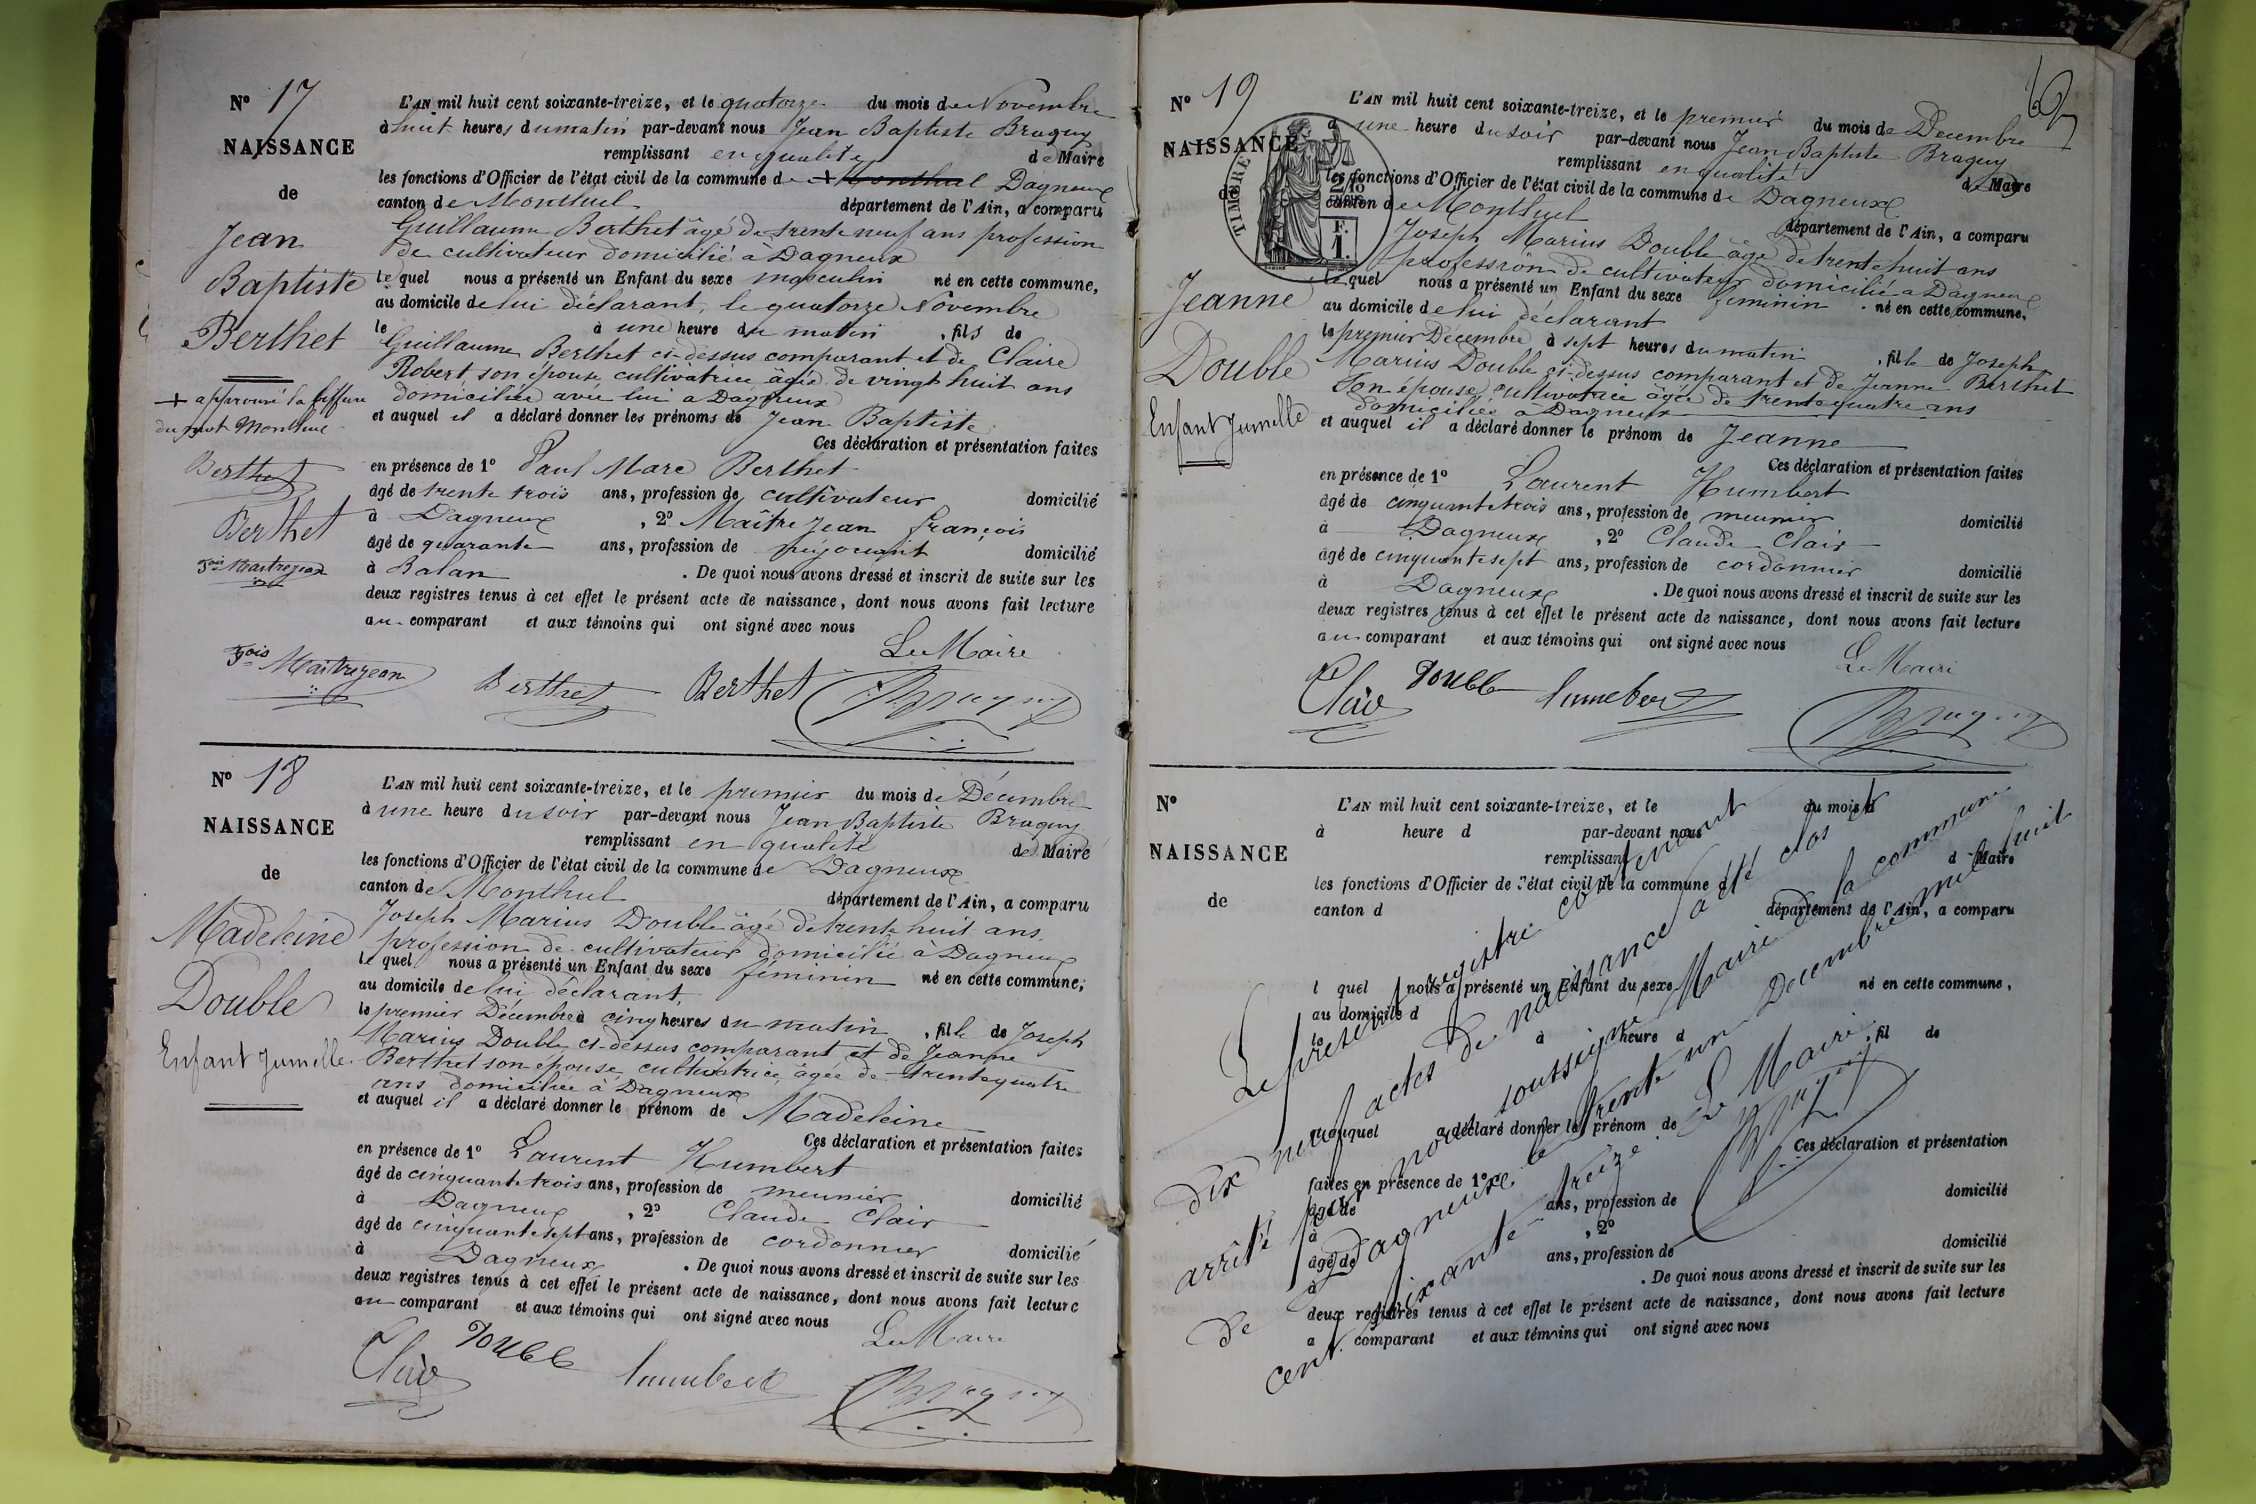 N° 17
NAISSANCE
de
Jean
Baptiste
Berthet
+ approuvé la biffure
du mot Montluel
Berthet
Berthet
Fois Maitrejean
L'AN mil huit cent soixante-treize, et le quatorze du mois de Novembre
à huit heures du matin par-devant nous Jean Baptiste Braguy
remplissant en qualité de Maire
les fonctions d'Officier de l'état civil de la commune de + Montluel Dagneux
canton de Montluel département de l'Ain, a comparu
Guillaume Berthet âgé de trente neuf ans profession
de cultivateur domicilié à Dagneux
lequel nous a présenté un Enfant du sexe masculin né en cette commune,
au domicile de lui déclarant, le quatorze Novembre
le à une heure du matin , fils de
Guillaume Berthet ci-dessus comparant et de Claire
Robert son épouse cultivatrice âgée de vingt huit ans
domiciliée avec lui a Dagneux
et auquel il a déclaré donner les prénoms de Jean Baptiste
Ces déclaration et présentation faites
en présence de 1° Paul Marc Berthet
âgé de trente trois ans, profession de cultivateur domicilié
à Dagneux , 2° Maître Jean François
âgé de quarante ans, profession de négociant domicilié
à Balan . De quoi nous avons dressé et inscrit de suite sur les
deux registres tenus à cet effet le présent acte de naissance, dont nous avons fait lecture
au comparant et aux témoins qui ont signé avec nous
Le Maire
Fois Maitrejean Berthet Berthet Braguy
N° 18
NAISSANCE
de
Madeleine
Double
Enfant Jumelle
L'AN mil huit cent soixante-treize, et le premier du mois de Décembre
à une heure du soir par-devant nous Jean Baptiste Braguy
remplissant en qualité de Maire
les fonctions d'Officier de l'état civil de la commune de Dagneux
canton de Montluel département de l'Ain, a comparu
Joseph Marius Double âgé de trente huit ans
profession de cultivateur domicilié à Dagneux
lequel nous a présenté un Enfant du sexe féminin né en cette commune,
au domicile de lui déclarant,
le premier Décembre à cinq heures du matin , fille de Joseph
Marius Double ci-dessus comparant et de Jeanne
Berthet son épouse, cultivatrice, âgée de trente quatre
ans domiciliée à Dagneux
et auquel il a déclaré donner le prénom de Madeleine
Ces déclaration et présentation faites
en présence de 1° Laurent Humbert
âgé de cinquante trois ans, profession de meunier domicilié
à Dagneux , 2° Claude Clair
âgé de cinquante sept ans, profession de cordonnier domicilié
à Dagneux . De quoi nous avons dressé et inscrit de suite sur les
deux registres tenus à cet effet le présent acte de naissance, dont nous avons fait lecture
au comparant et aux témoins qui ont signé avec nous
Le Maire
Clair Double humbert Braguy
65
N° 19
NAISSANCE
de
Jeanne
Double
Enfant Jumelle
TIMBRE
F.
1.
L'AN mil huit cent soixante-treize, et le premier du mois de Décembre
à une heure du soir par-devant nous Jean Baptiste Braguy
remplissant en qualité de Maire
les fonctions d'Officier de l'état civil de la commune de Dagneux
canton de Montluel département de l'Ain, a comparu
Joseph Marius Double âgé de trente huit ans
profession de cultivateur domicilié a Dagneux
lequel nous a présenté un Enfant du sexe féminin né en cette commune,
au domicile de lui déclarant
le premier Décembre à sept heures du matin , fille de Joseph
Marius Double ci-dessus comparant et de Jeanne Berthet
son épouse cultivatrice âgée de trente quatre ans
domiciliée a Dagneux
et auquel il a déclaré donner le prénom de Jeanne
Ces déclaration et présentation faites
en présence de 1° Laurent Humbert
âgé de cinquante trois ans, profession de meunier domicilié
à Dagneux , 2° Claude Clair
âgé de cinquante sept ans, profession de cordonnier domicilié
à Dagneux . De quoi nous avons dressé et inscrit de suite sur les
deux registres tenus à cet effet le présent acte de naissance, dont nous avons fait lecture
au comparant et aux témoins qui ont signé avec nous
Le Maire
Clair Double humbert Braguy
N°
NAISSANCE
de
L'AN mil huit cent soixante-treize, et le du mois d
à heure d par-devant nous
remplissant d Maire
les fonctions d'Officier de l'état civil de la commune d
canton d département de l'Ain, a comparu
l quel nous a présenté un Enfant du sexe né en cette commune,
au domicile d
le à heure d , fil de
et auquel a déclaré donner le prénom de
Ces déclaration et présentation
faites en présence de 1°
âgé de ans, profession de domicilié
à , 2°
âgé de ans, profession de domicilié
à . De quoi nous avons dressé et inscrit de suite sur les
deux registres tenus à cet effet le présent acte de naissance, dont nous avons fait lecture
a comparant et aux témoins qui ont signé avec nous
Le présent registre contenant
dix neuf actes de naissance a été clos et
arrêté par nous soussigné Maire de la commune
de Dagneux le trente un Décembre mil huit
cent soixante treize. Le Maire
Braguy